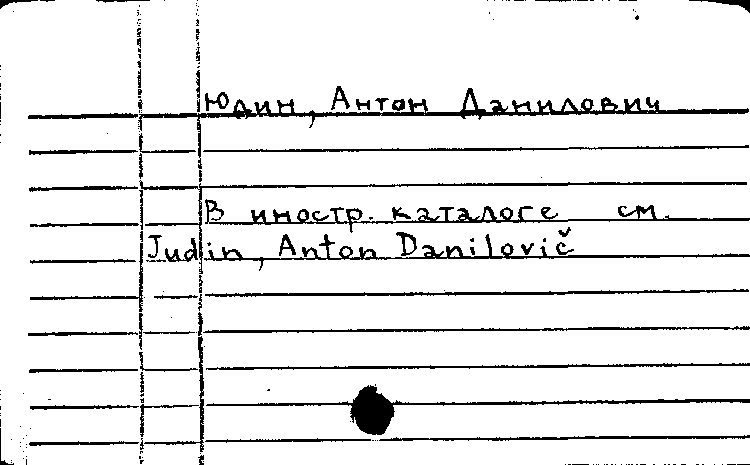 Юдин, Антон Данилович
В иностр. каталоге см.
Judin, Anton Danilovič